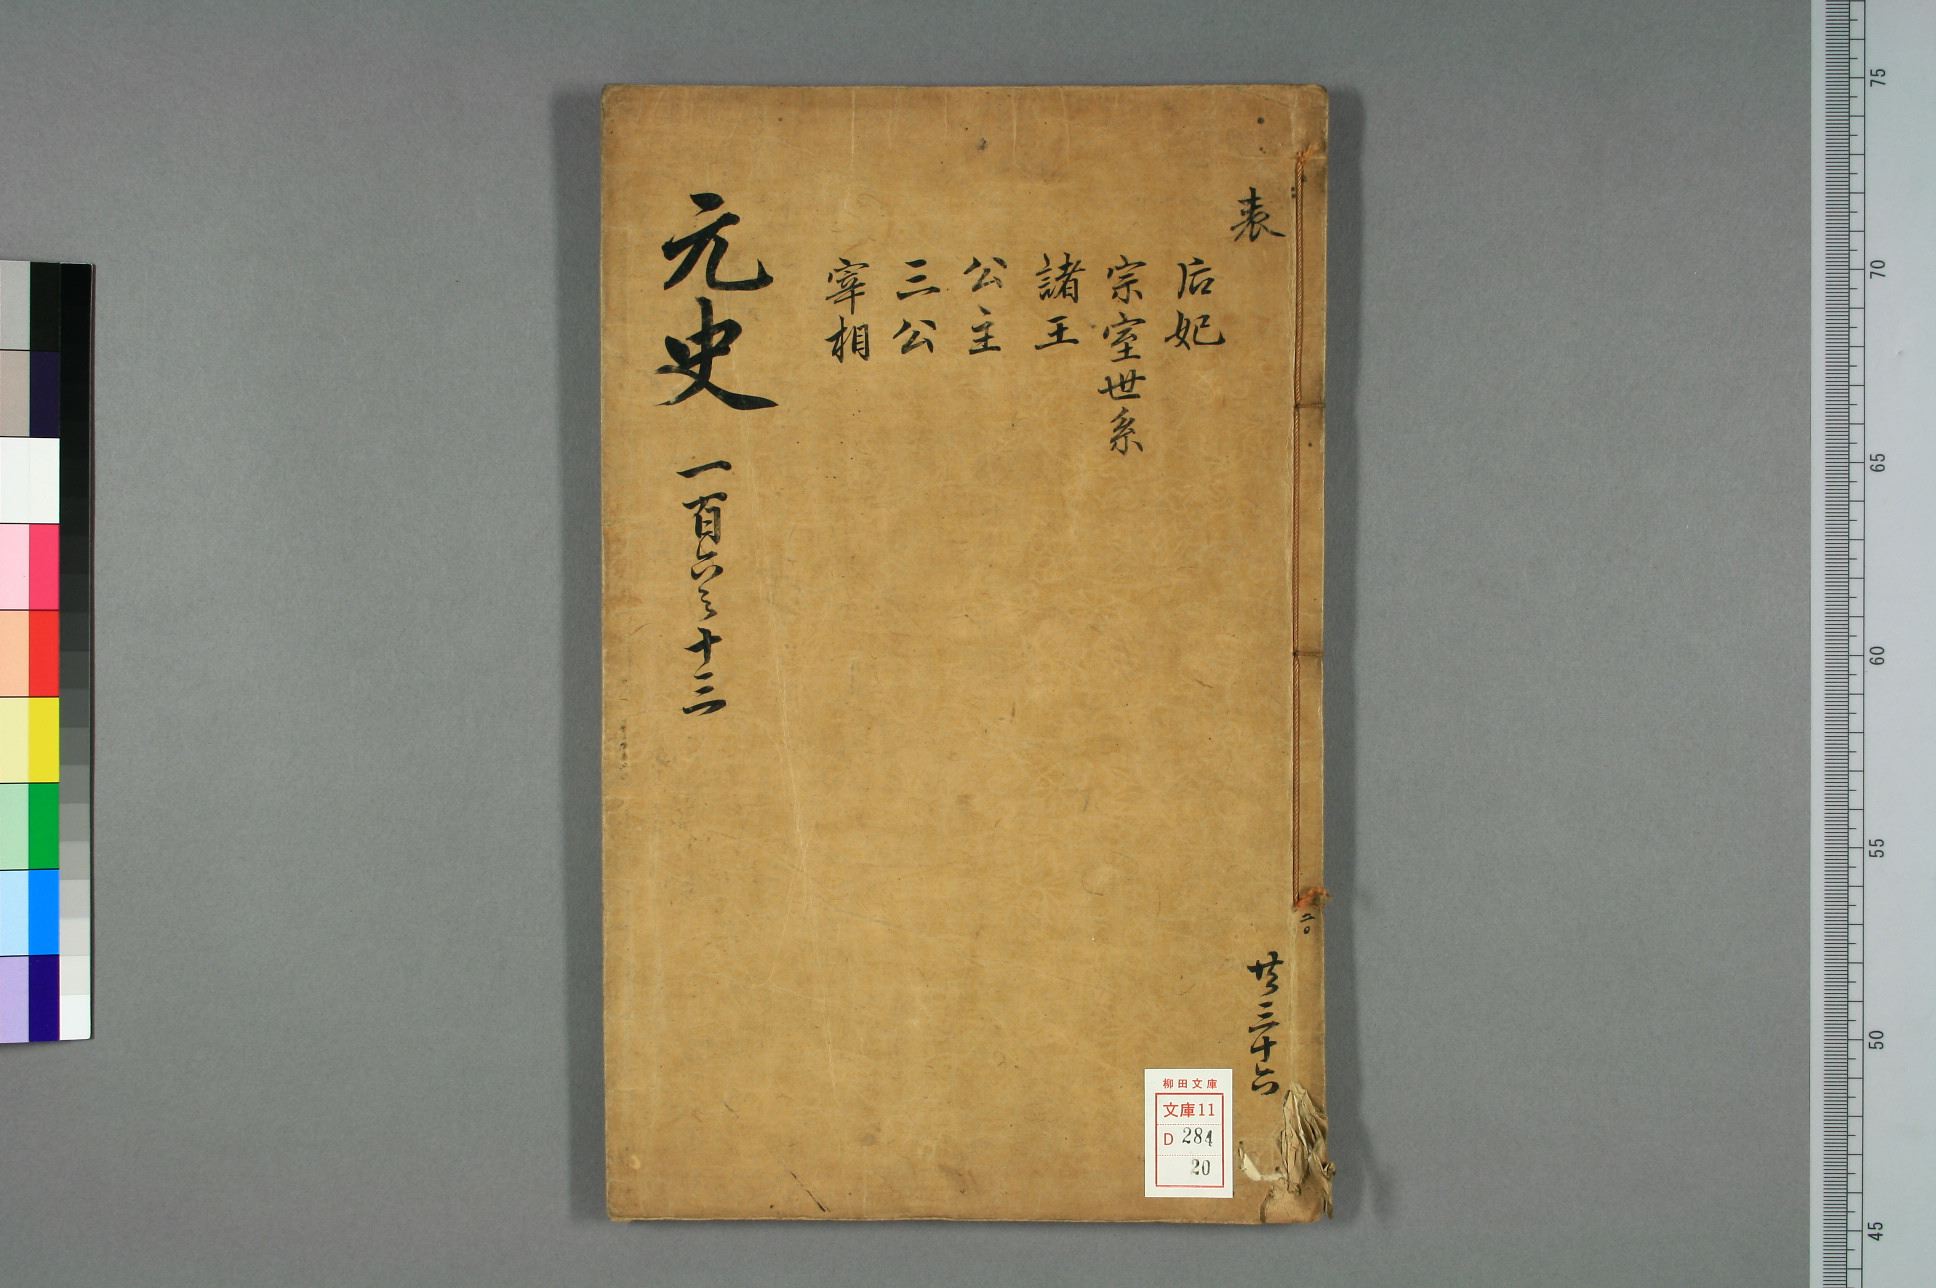 表
后妃
宗室世系
諸王
公主
三公
宰相
元史 一百六之十三
二〇
共三十六
柳田文庫
文庫11
D 284
20
75
70
65
60
55
50
45